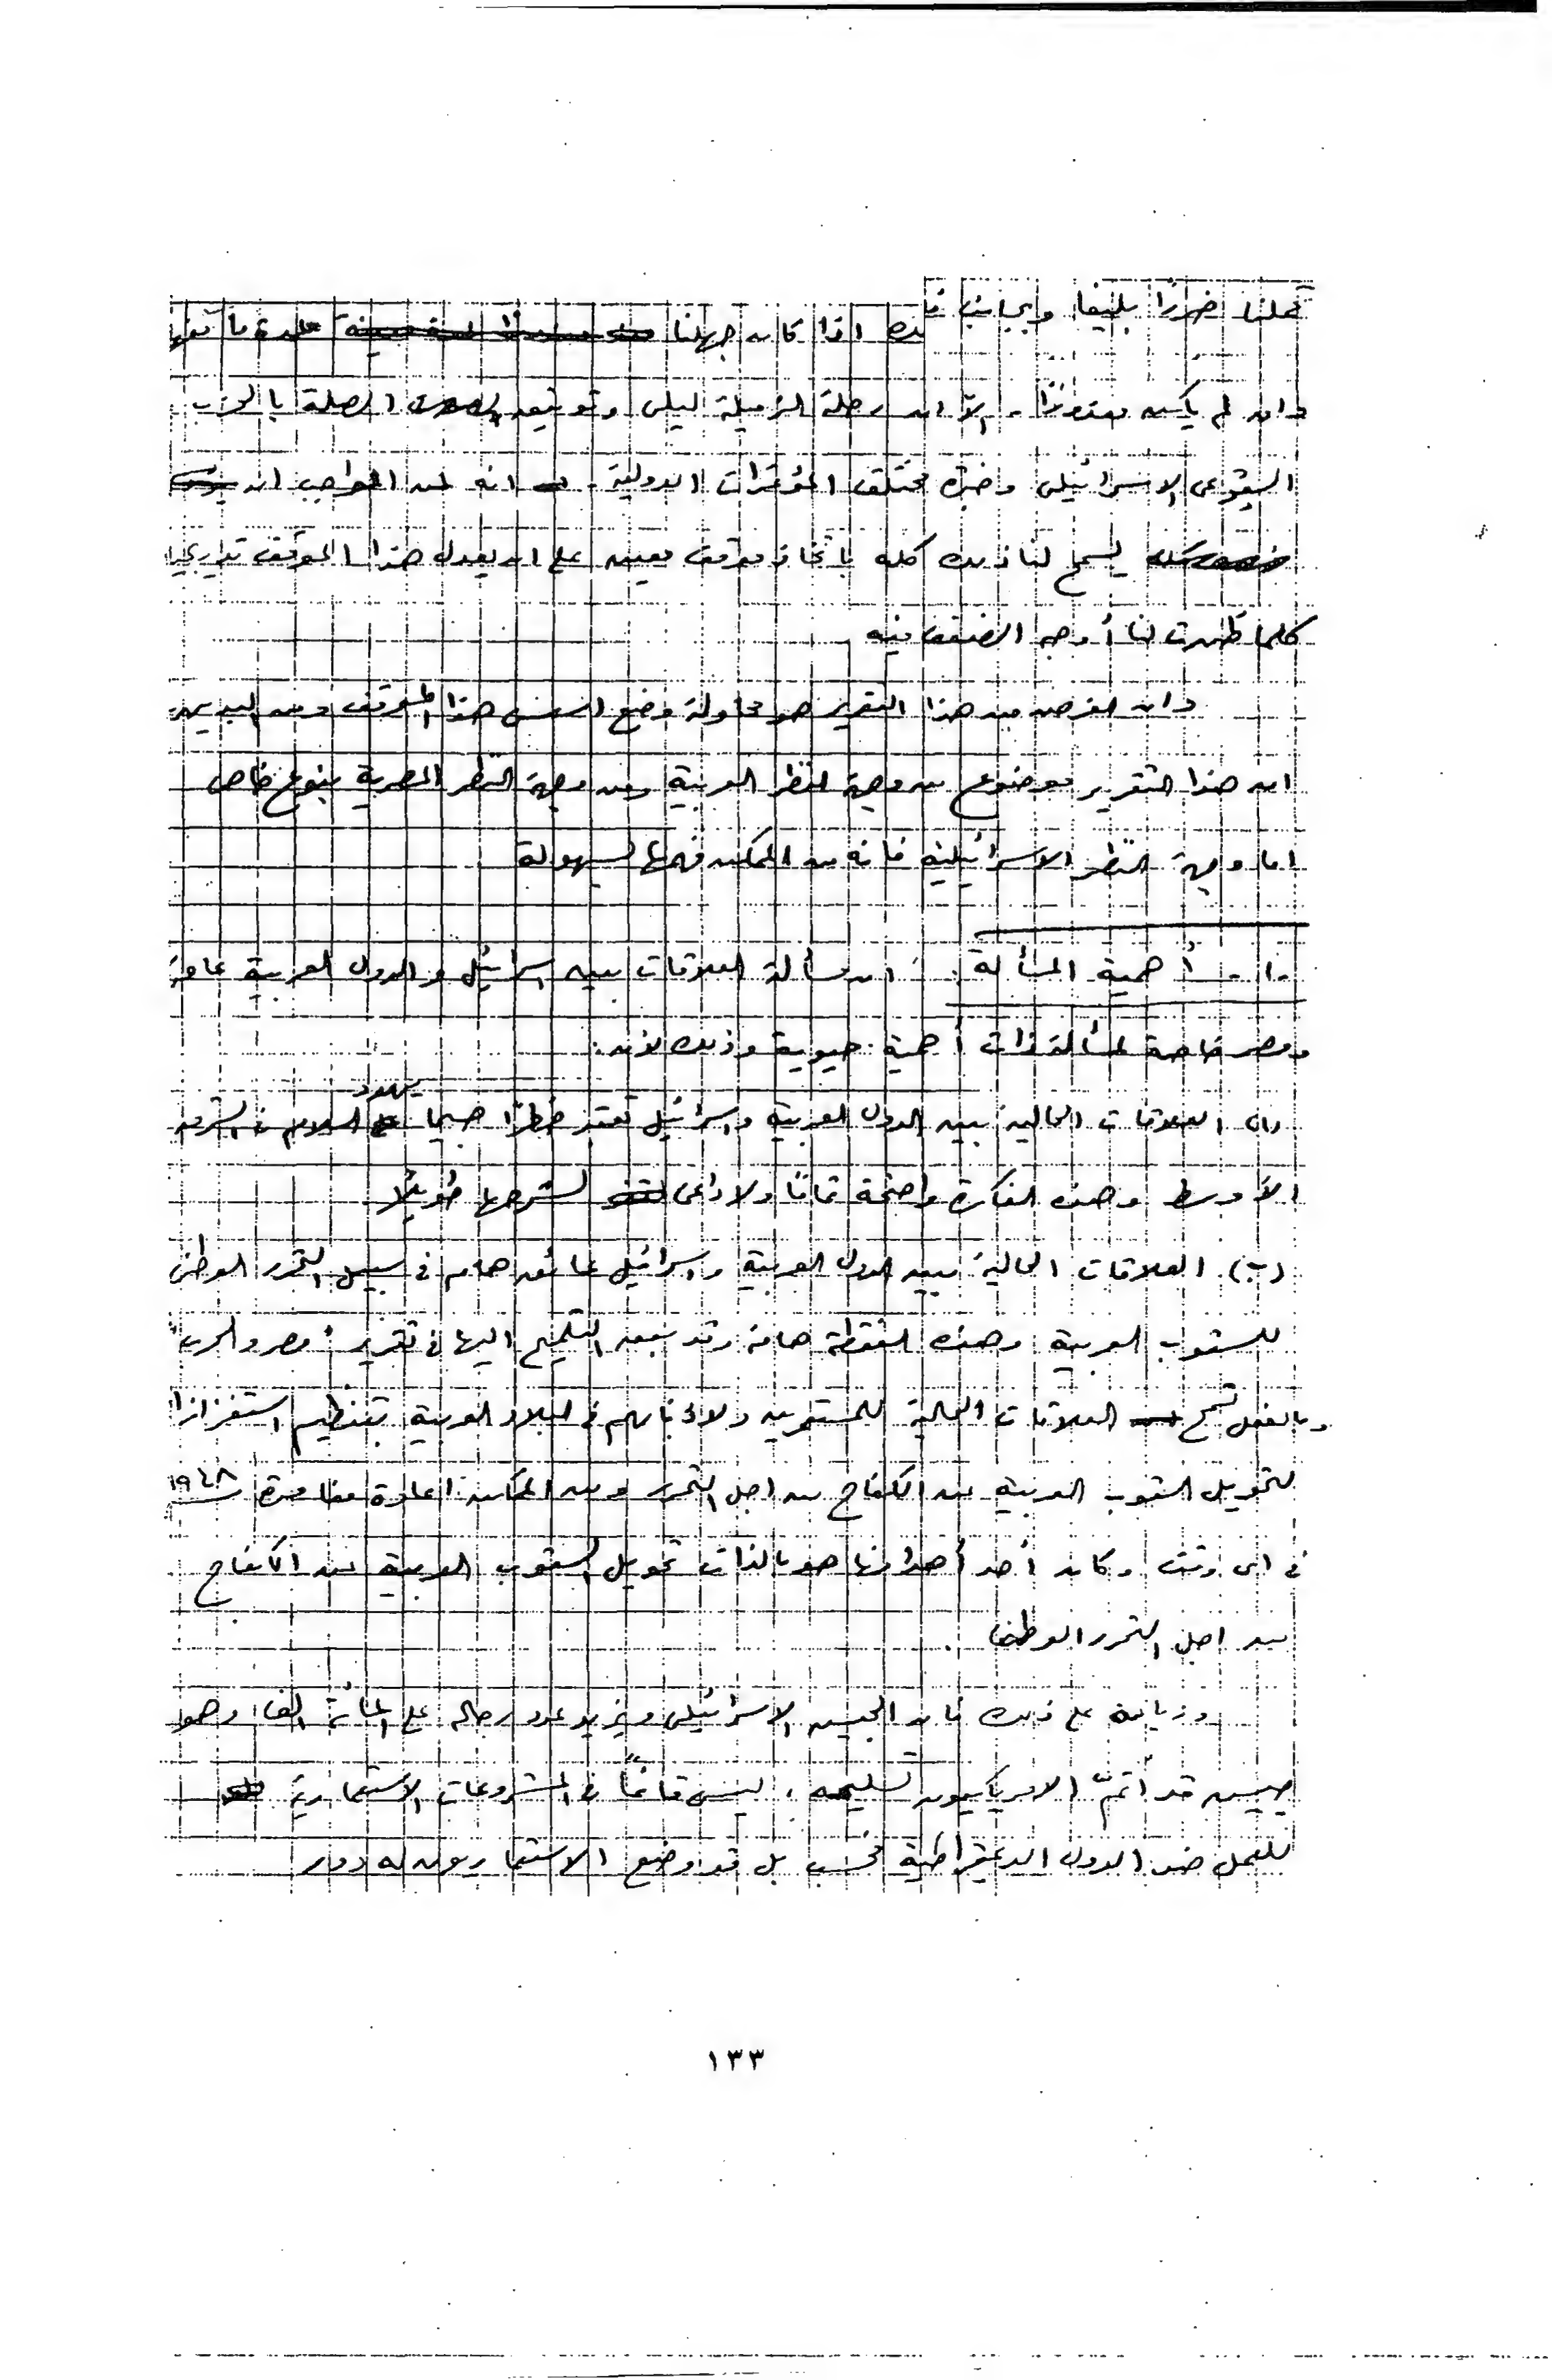 عملنا ضررا بليغا وبجانب
اذا كان جهلنا
وان لم يكن معذورا - الا ان رحلة الزميلة ليلى وتوثيق الصلة بالحزب
الشيوعى الاسرائيلى وخبرة مختلف المؤتمرات الدولية - انه من الواجب ان
يسمح لنا ذلك كله باتخاذ موقف معين على ان يعدل هذا الموقف تدريجيا
كلما ظهرت لنا أوجه الضعف فيه
وان الغرض من هذا التقرير هو محاولة وضع اسس هذا الموقف ومن البديهى
ان هذا التقرير موضوع من وجهة النظر العربية ومن وجهة النظر المصرية بنوع خاص
اما وجهة النظر الاسرائيلية فانه من الممكن فهمها بسهولة
-١- أهمية المسألة : ان مسألة العلاقات بين اسرائيل والدول العربية عامة
ومصر خاصة لمسألة ذات أهمية حيوية وذلك لأن :
(ا) العلاقات الحالية بين الدول العربية واسرائيل تعتبر خطرا جسيما يهدد السلام فى الشرق
الأوسط وهذه الفكرة واضحة تماما ولا داعى لشرحها طويلا
(ب) العلاقات الحالية بين الدول العربية واسرائيل عائق هام فى سبيل التحرر الوطنى
للشعوب العربية وهذه النقطة هامة وقد سبق التلميح اليها فى تقرير "مصر والحرب"
وبالفعل تسمح العلاقات الحالية للمستعمرين ولاذنابهم فى البلاد العربية بتنظيم استفزازا
لتحويل الشعوب العربية عن الكفاح من اجل التحرر ومن الممكن اعادة مغامرة ١٩٤٨
فى اى وقت وكان أحد أهدافها هو بالذات تحويل الشعوب العربية عن الكفاح
من اجل التحرر الوطنى
وزيادة على ذلك فان الجيش الاسرائيلى ويزيد عدد رجاله على المائة الف وهو
جيش قد أتمّ الامريكيون تسليحه ، ليس قائما فى المشروعات الاستعمارية
للعمل ضد الدول الديمقراطية فحسب بل قد وضع الاستعماريون له دور
١٣٣